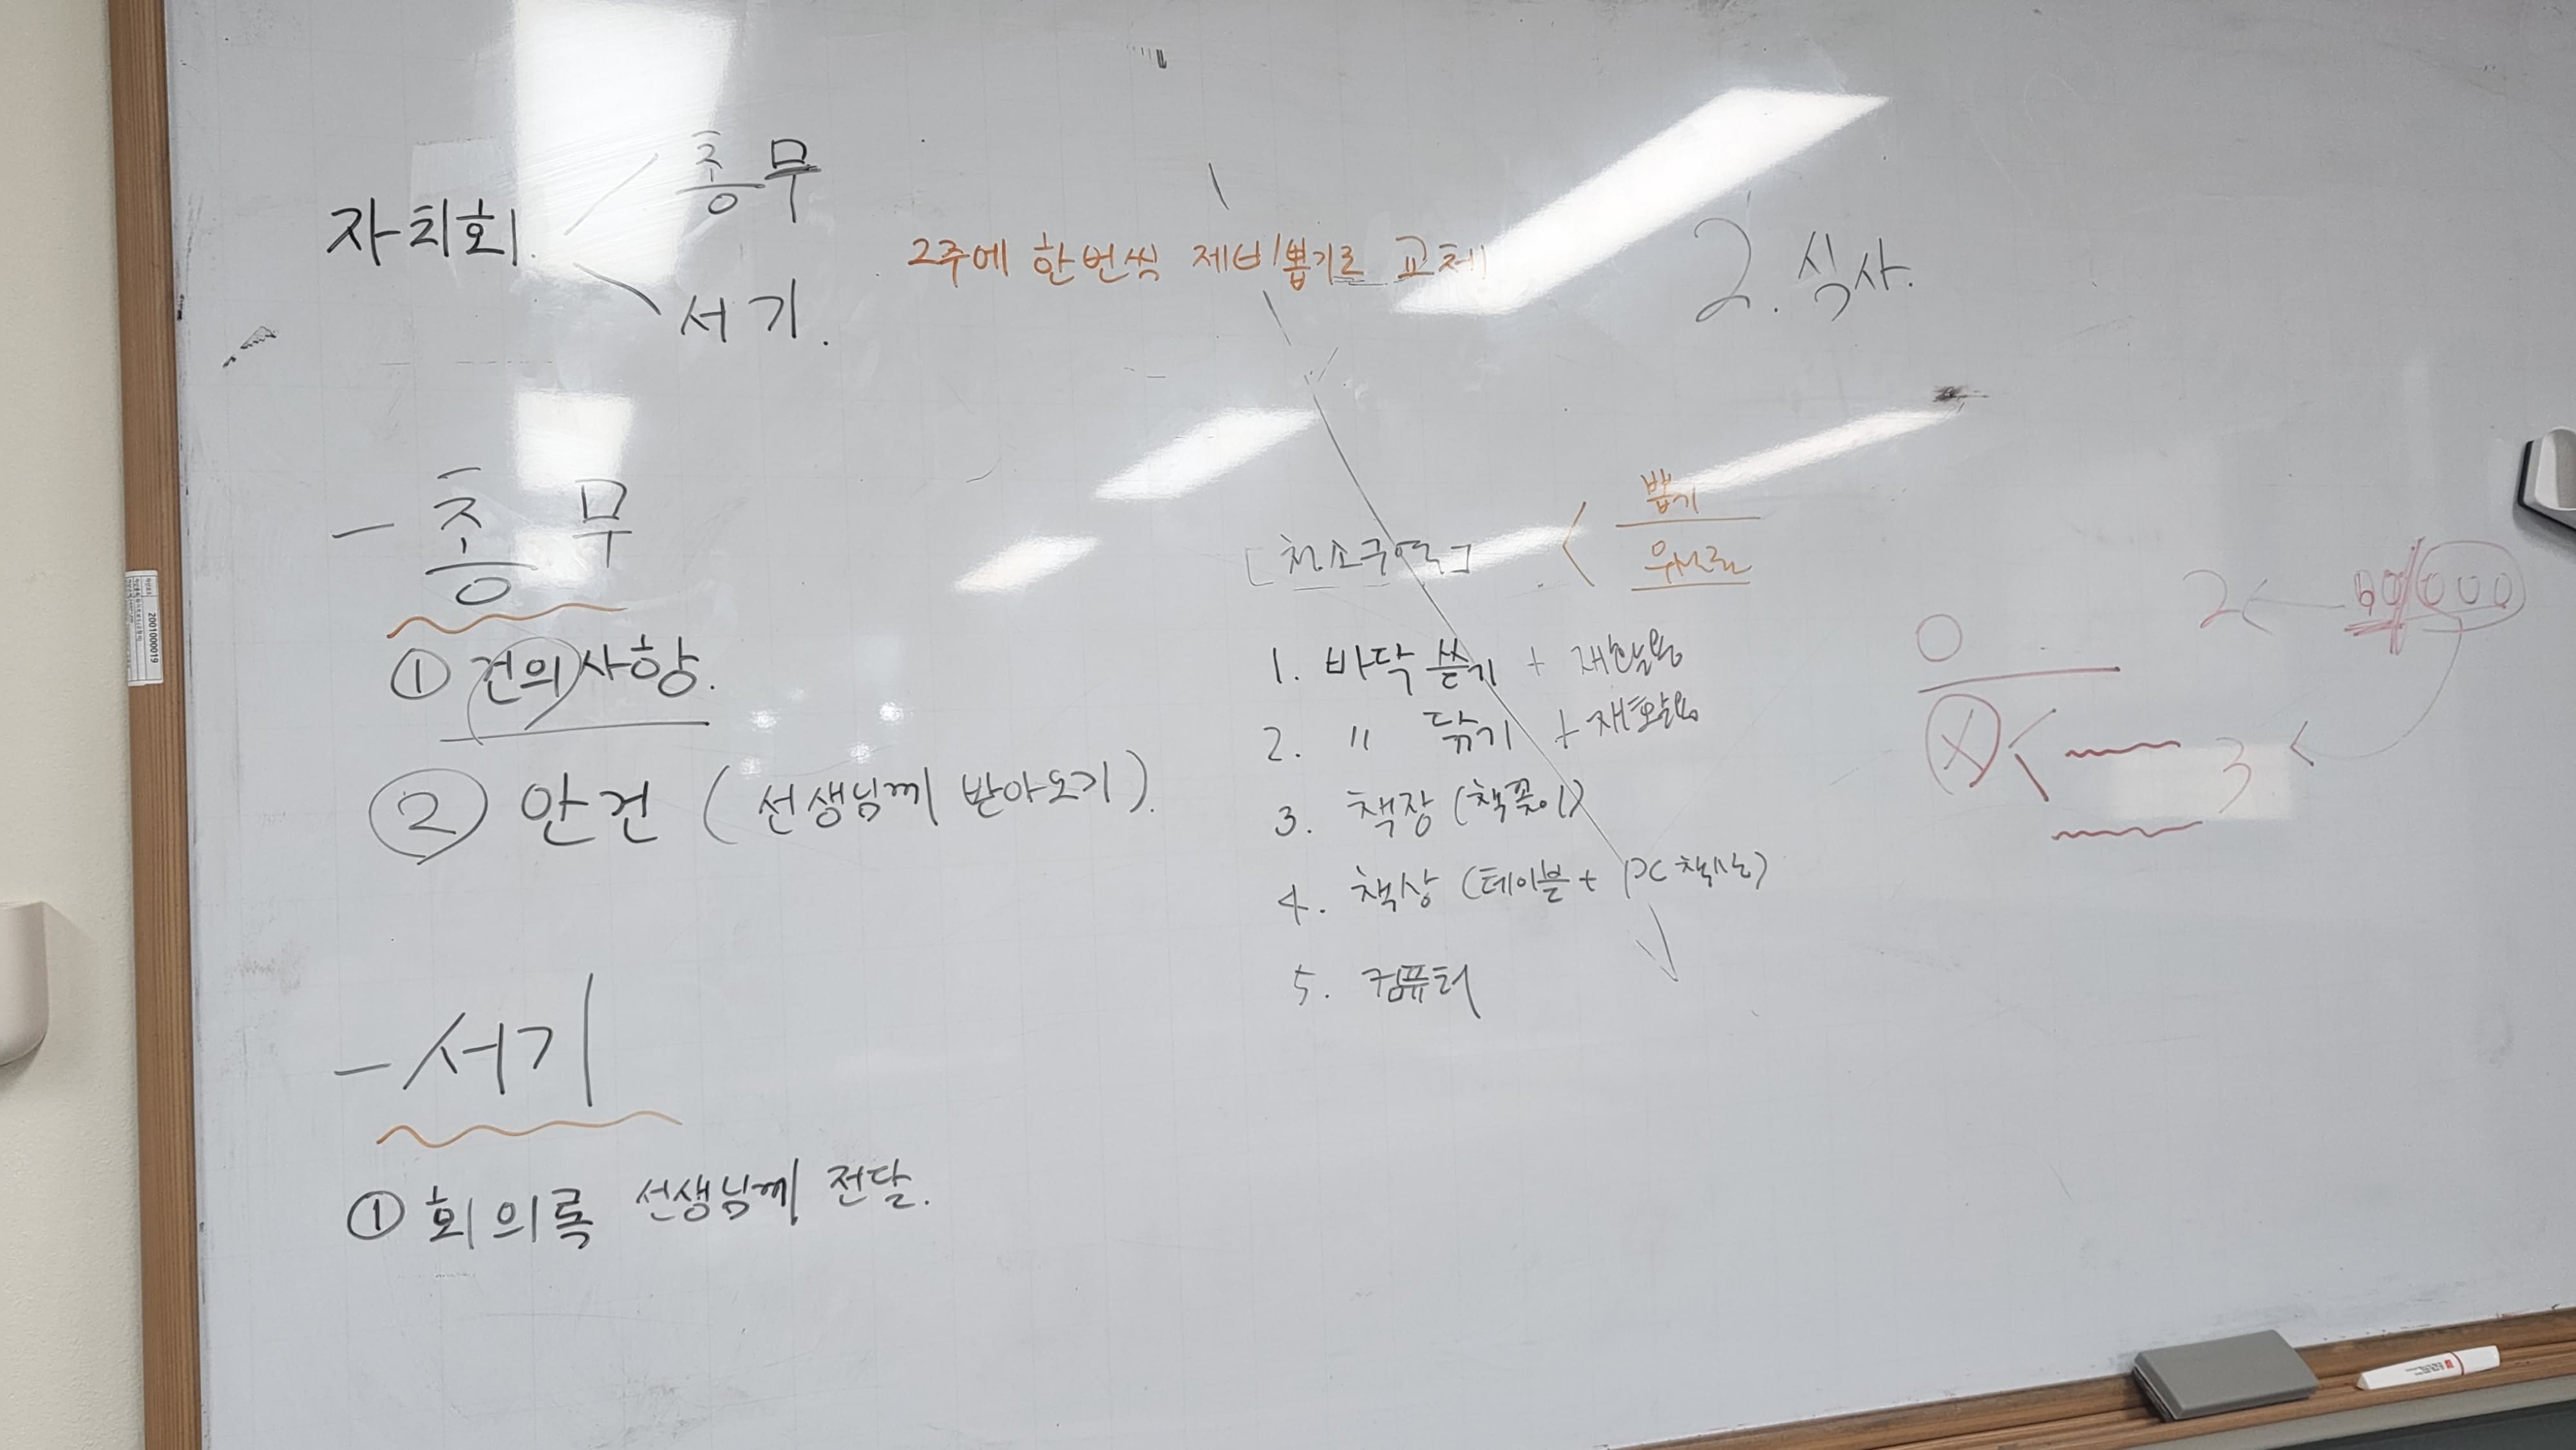 자치회.
총무
서기.
2주에 한번씩 제비뽑기로 교체
- 총무
① 건의사항.
② 안건 (선생님께 받아오기).
- 서기
① 회의록 선생님께 전달.
[청소구역]
뽑기
1. 바닥 쓸기 + 재활용
2. 〃 닦기 + 재활용
3. 책장 (책꽂이)
4. 책상 (테이블 + PC 책상)
5. 컴퓨터
2. 식사.
O
X
2
3
2001000019